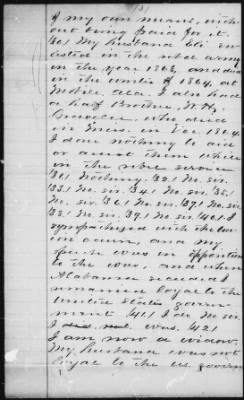 (3)
of my own means, with
out being paid for it.
30| My husband Eli en
listed in the rebel army
in the year 1862, and died
in the winter of 1864, at
Mobile, Ala. I also had
a half Brother, W. H.
who died
in Dec. 1864.
I done nothing to aid
or assist them while
in the rebel service
31| Nothing. 32| No sir.
33| No sir. 34| No sir. 35|
No. sir. 36| No sir. 37| No sir.
38| No sir. 39| No sir. 40| I
sympathized with the Un
ion cause, and my
was in opposition
to the war, and when
Alabama seceded I
remained loyal to the
United States govern
ment 41| I do. No sir.
I was. 42|
I am now a widow.
My husband was not
loyal to the U.S. govern